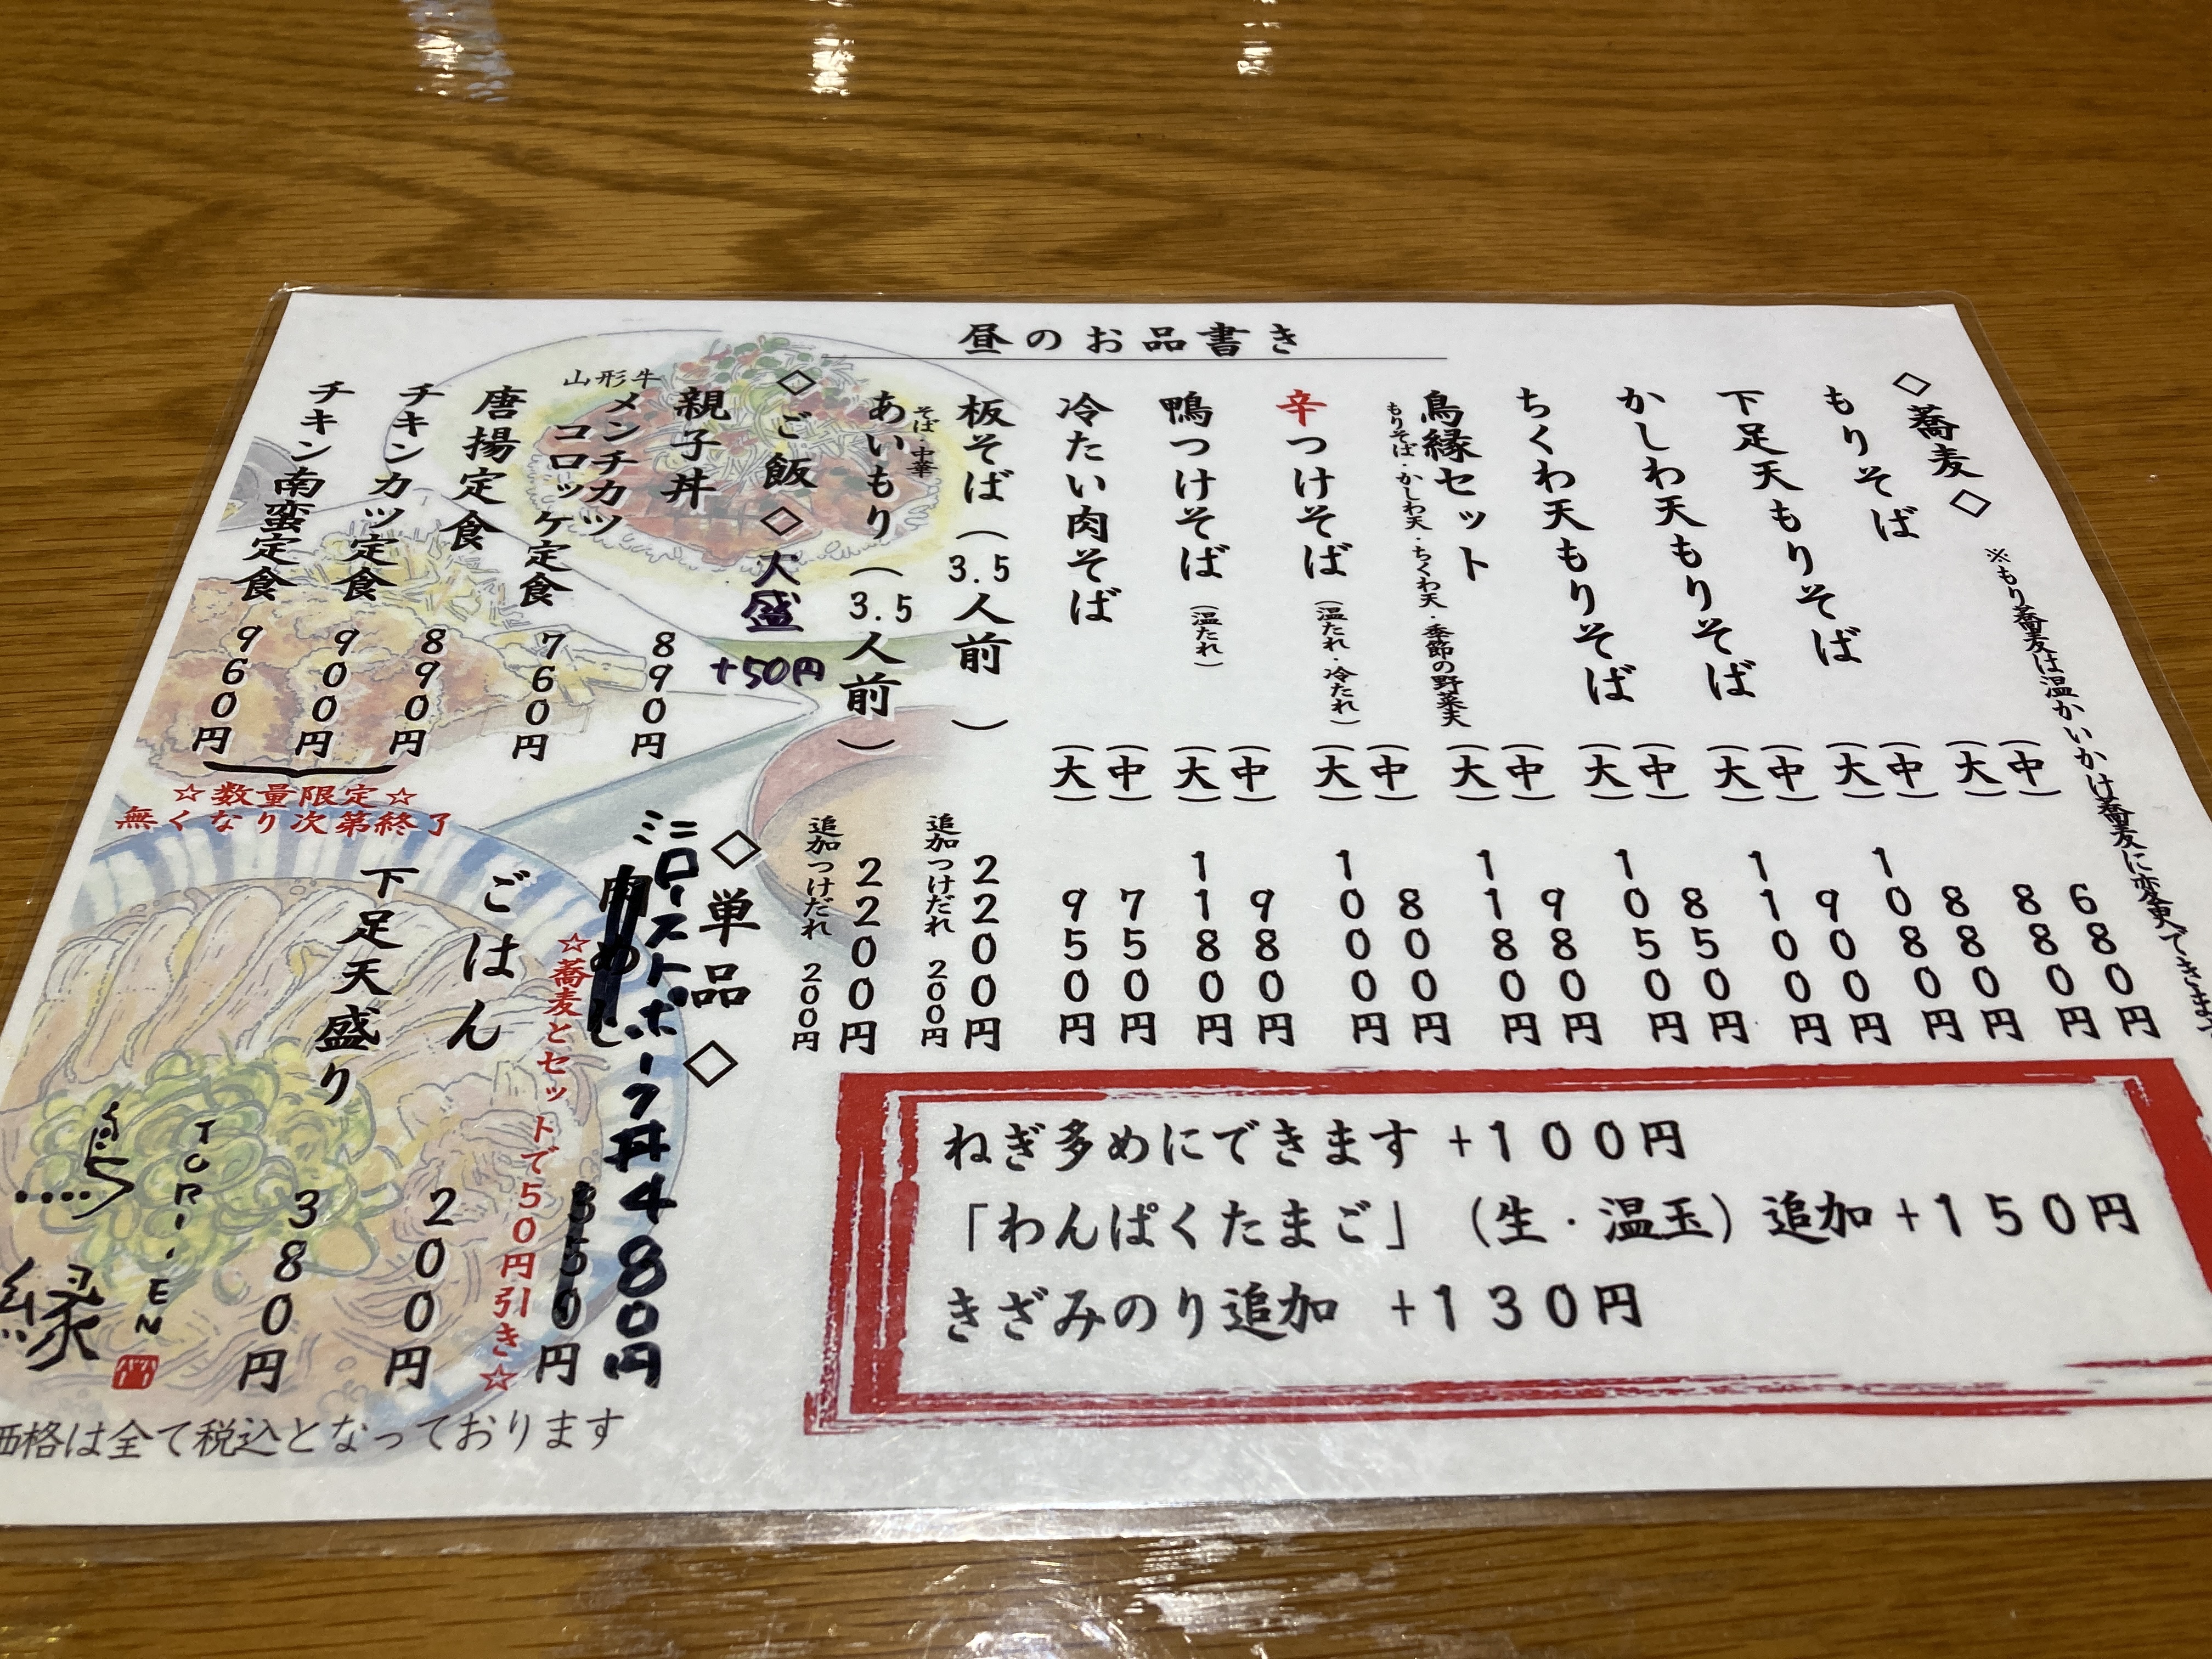 昼のお品書き
◇蕎麦◇
※もり蕎麦は温かいかけ蕎麦に変更できます
もりそば (中) 680円
(大) 880円
下足天もりそば (中) 880円
(大) 1080円
かしわ天もりそば (中) 900円
(大) 1100円
ちくわ天もりそば (中) 850円
(大) 1050円
鳥縁セット (中) 980円
もりそば・かしわ天・ちくわ天・季節の野菜天
(大) 1180円
辛つけそば (温たれ・冷たれ) (中) 800円
(大) 1000円
鴨つけそば (温たれ) (中) 980円
(大) 1180円
冷たい肉そば (中) 750円
(大) 950円
板そば (3.5人前) 2200円
追加つけだれ 200円
そば・中華
あいもり (3.5人前) 2200円
追加つけだれ 200円
◇ご飯◇ 大盛 +50円
親子丼 890円
山形牛
メンチカツ
コロッケ定食 760円
唐揚定食 890円
チキンカツ定食 900円
チキン南蛮定食 960円
☆数量限定☆
無くなり次第終了
◇単品◇
ミニローストポーク丼480円
肉めし 350円
☆蕎麦とセットで50円引き☆
ごはん 200円
下足天盛り 380円
TORI・EN
鳥
縁
ねぎ多めにできます +100円
「わんぱくたまご」(生・温玉) 追加 +150円
きざみのり追加 +130円
価格は全て税込となっております